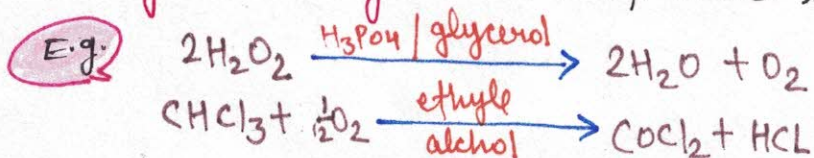 E.g. 2H₂O₂ H₃PO₄ | glycerol → 2H₂O + O₂
CHCl₃ + ½O₂ ethyle alchol → COCl₂ + HCL